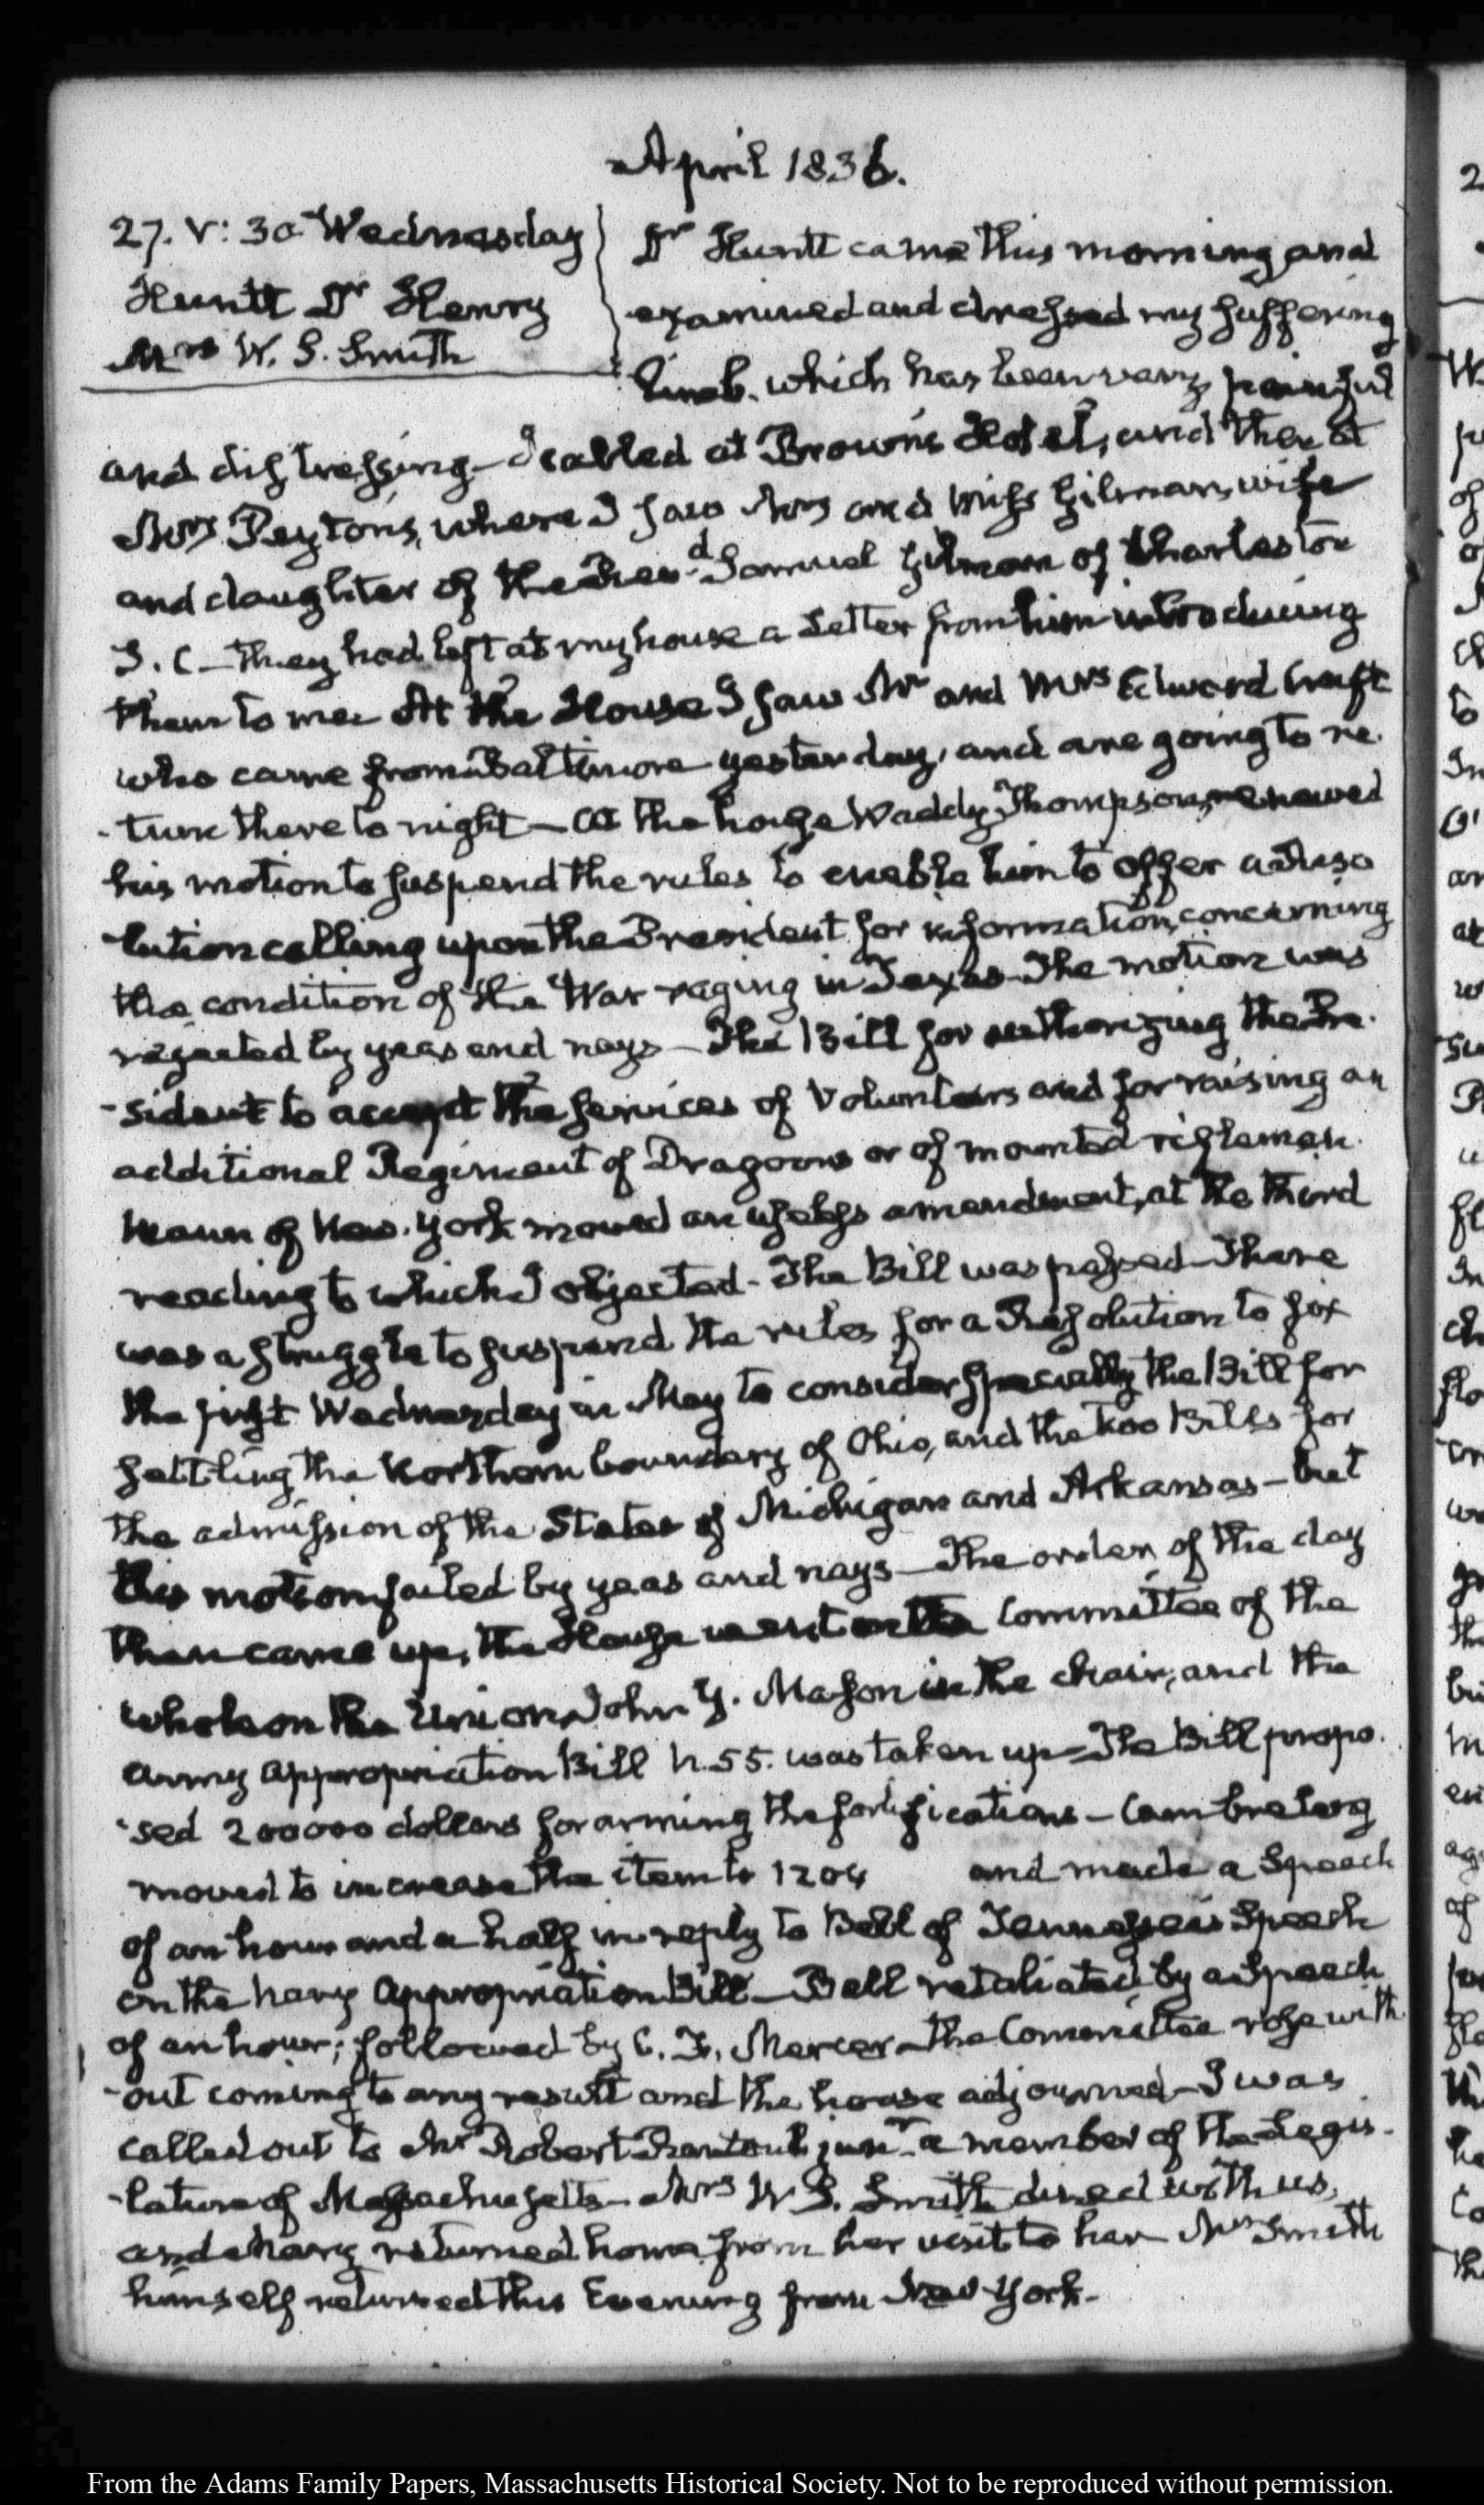 April 1836.
27. V: 30 Wednesday
Huntt Dr Henry
Mrs W. S. Smith
Dr Huntt came this morning and
examined and dressed my suffering
limb. which has been very painful
and distressing— I called at Brown's Hotel, and then at
Mrs Peyton's, where I saw Mrs and Miss Gilman, wife
and daughter of the Revd Samuel Gilman of Charleston
S. C— They had left at my house a Letter from him introducing
them to me. At the House I saw Mr and Mrs Edward Craft
who came from Baltimore yesterday, and are going to re-
-turn there to night— At the house Waddy Thompson, renewed
his motion to suspend the rules to enable him to offer a Reso
-lution calling upon the President for information, concerning
the condition of the War raging in Texas— The motion was
rejected by yeas and nays— The Bill for authorizing the Pre-
-sident to accept the services of Volunteers and for raising an
additional Regiment of Dragoons or of mounted riflemen.
Mann of New-York moved an useless amendment, at the third
reading to which I objected— The Bill was passed— There
was a struggle to suspend the rules for a Resolution to fix
the first Wednesday in May to consider specially the Bill for
settling the Northern boundary of Ohio, and the two Bills for
the admission of the States of Michigan and Arkansas— but
this motion failed by yeas and nays— The orders of the day
then came up, the House went into Committee of the
whole on the Union, John Y. Mason in the chair, and the
Army appropriation Bill N. 55. was taken up— The Bill propo-
-sed 200000 dollars for arming the fortifications— Cambreleng
moved to increase the item to 1204 and made a Speech
of an hour and a half in reply to Bell of Tennessee's Speech
on the Navy Appropriation Bill— Bell retaliated by a Speech
of an hour; followed by C. F. Mercer— The Committee rose with
-out coming to any result and the house adjourned— I was
called out to Mr Robert Rantoul junr a member of the Legis-
-lature of Massachusetts— Mrs W. S. Smith dined with us,
and Mary returned home from her visit to her Mr Smith
himself returned this Evening from New-York-
From the Adams Family Papers, Massachusetts Historical Society. Not to be reproduced without permission.